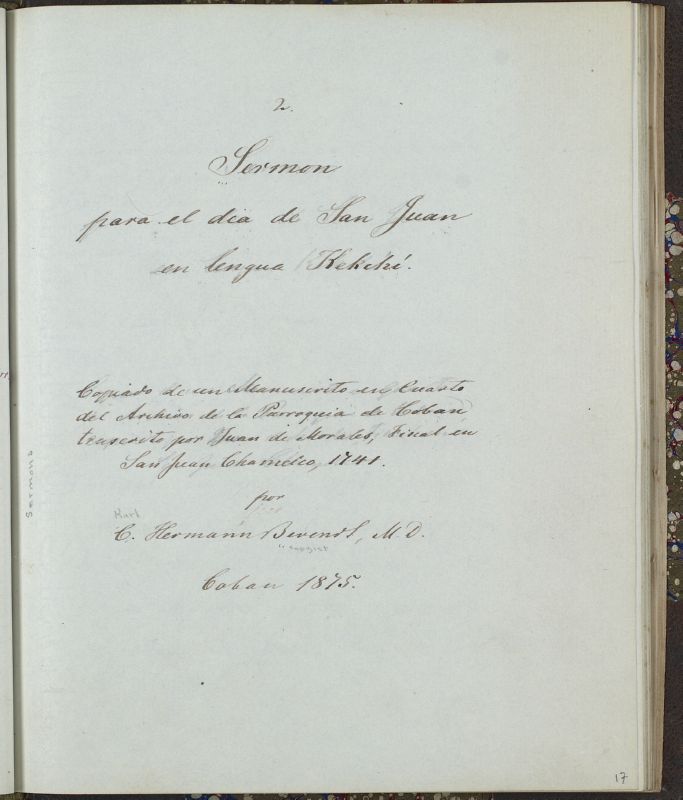 2.
Sermon
para el dia de San Juan
en lengua Kekchí.
Copiado de un Manuscrito en Cuarto
del Archivo de la Parroquia de Coban
trascrito por Juan de Morales, Fiscal en
San Juan Chamelco, 1741.
por
Karl
C. Hermann Berendt, M. D.
copyist
Coban 1875.
Sermons
17